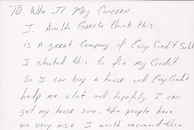 To Who IT May Concern
I. Analdo Garcia think this
is a great company of Easy Credit Solut
I started this to fix my Credit
So I can buy a house and Easy Credit
help me alot and hopefully I can
get my house soon. the people here
are very nice I would recomend them